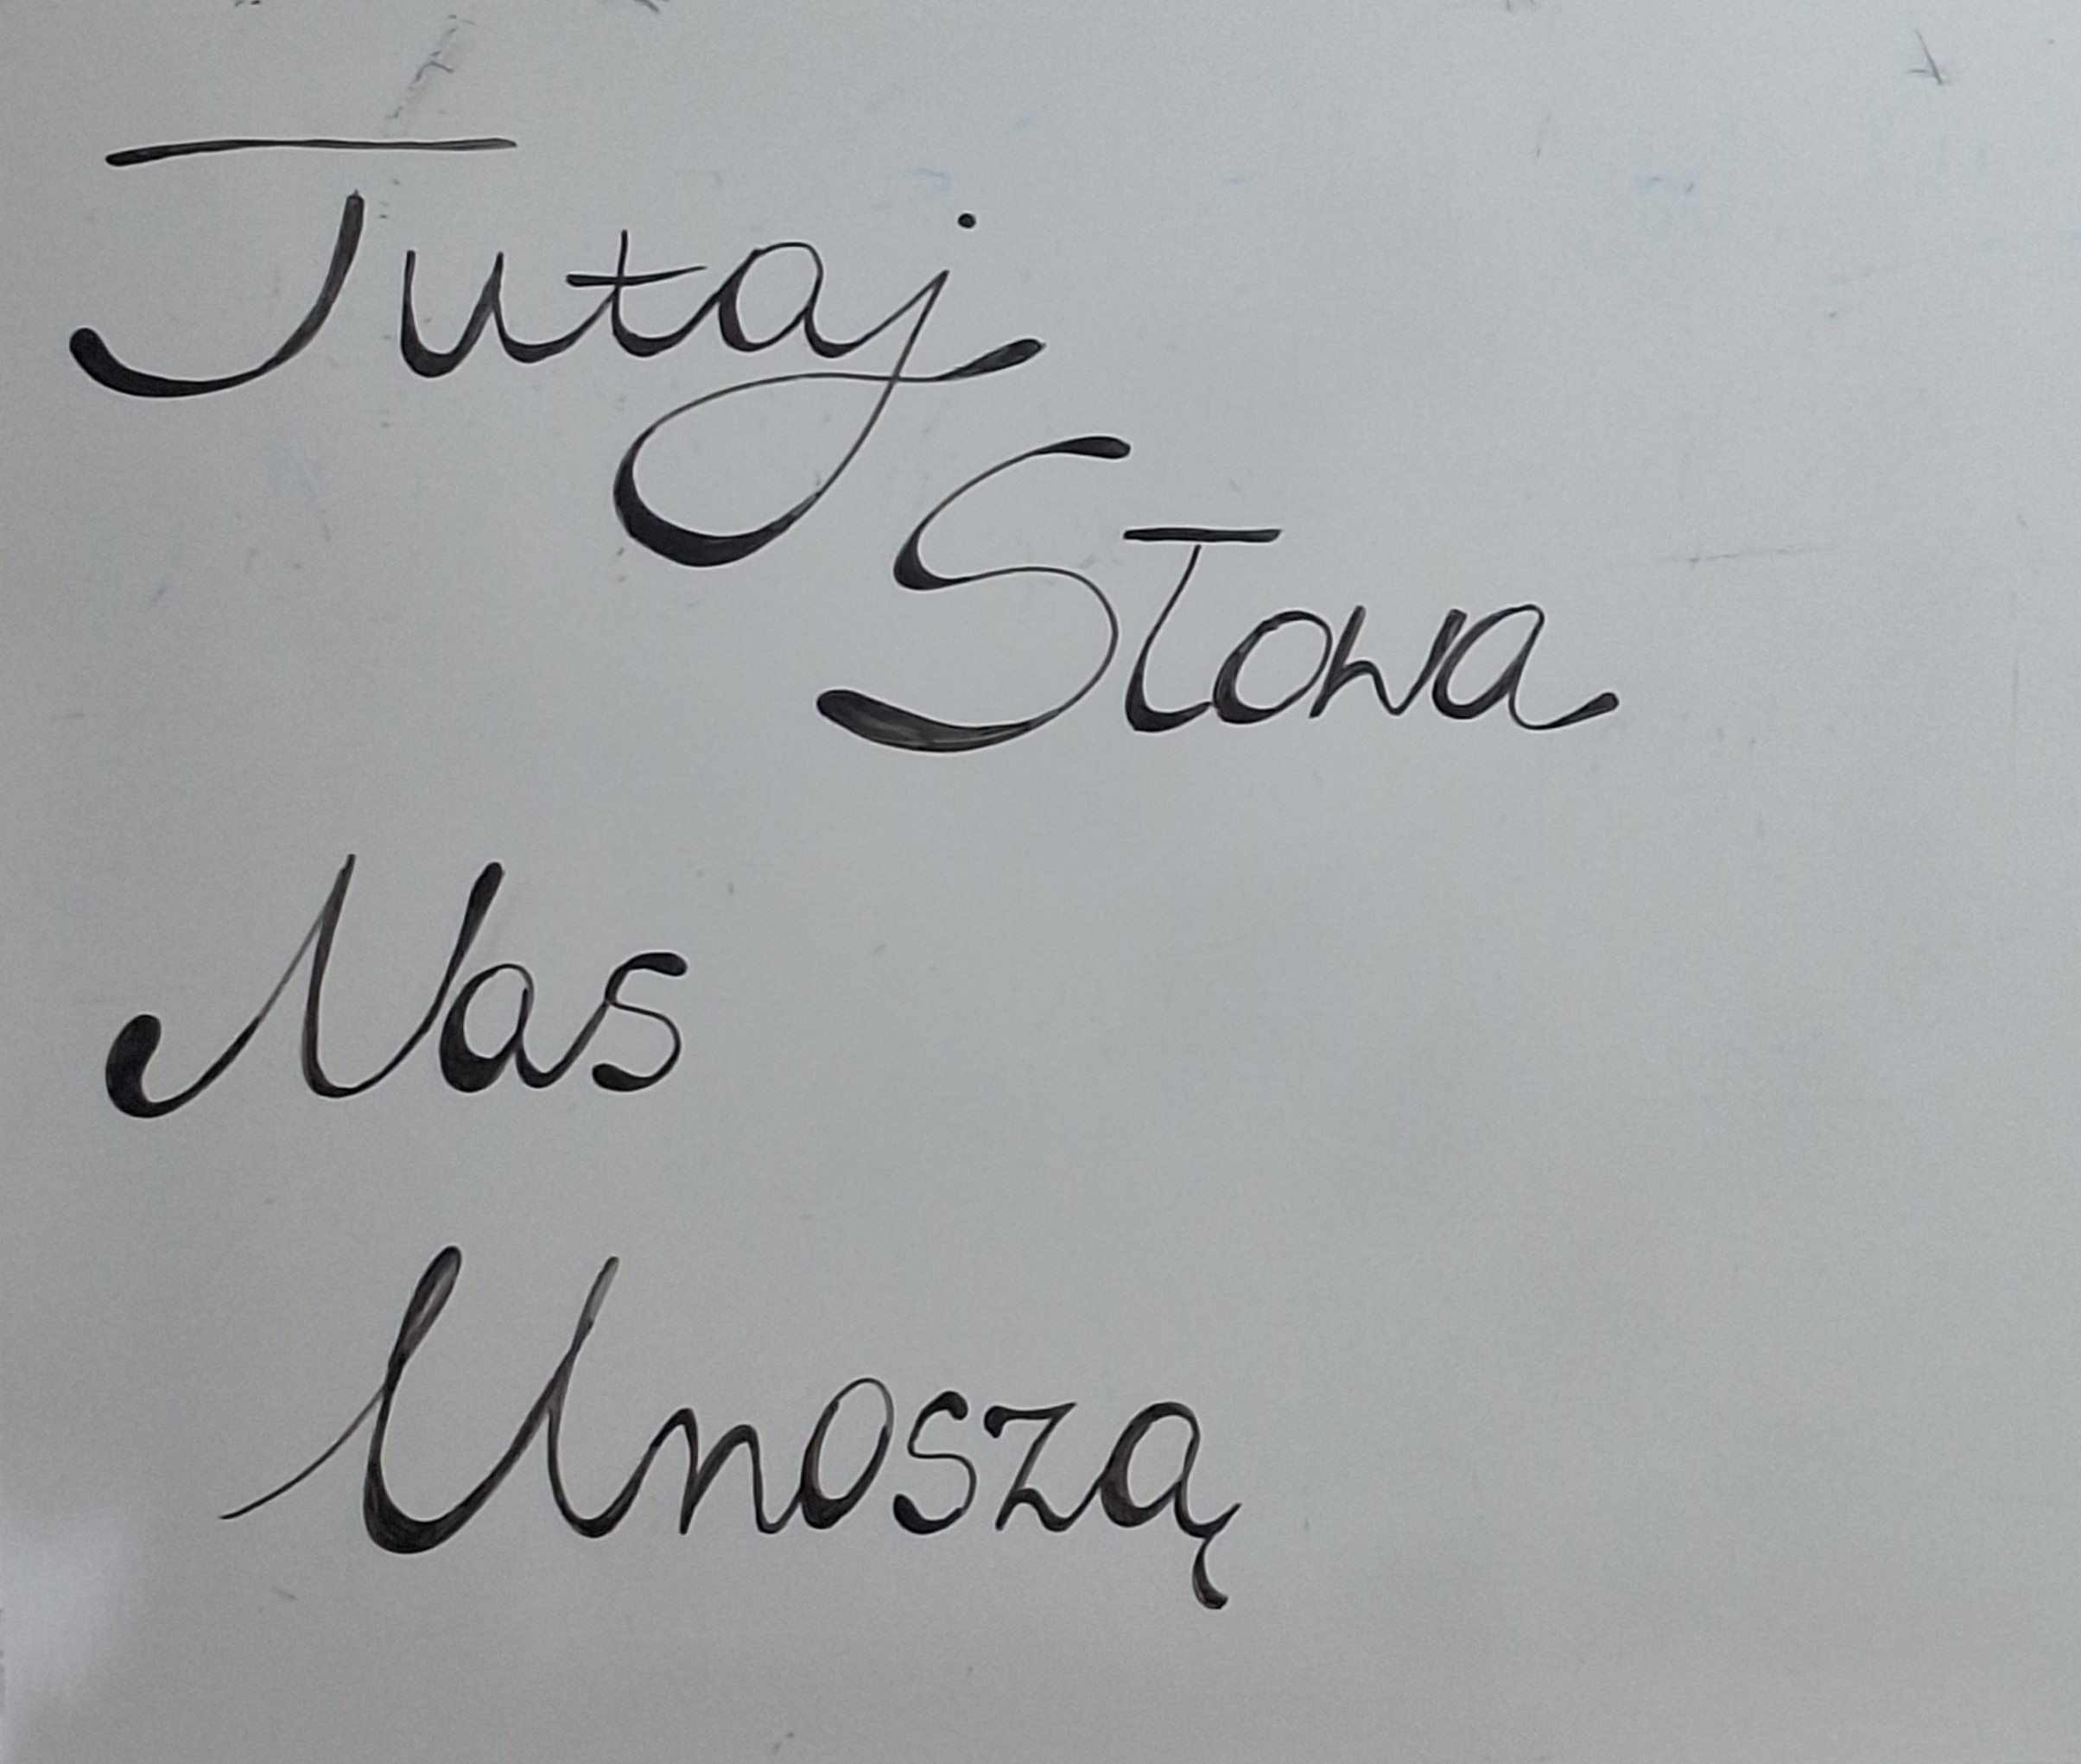 Tutaj
Słowa
Nas
Unoszą